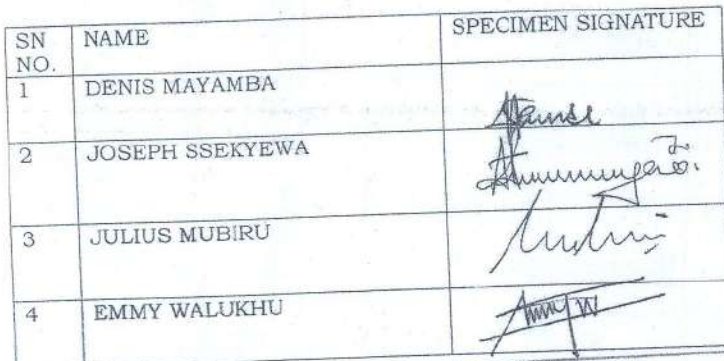 SN NO. NAME SPECIMEN SIGNATURE
1 DENIS MAYAMBA
2 JOSEPH SSEKYEWA
3 JULIUS MUBIRU
4 EMMY WALUKHU